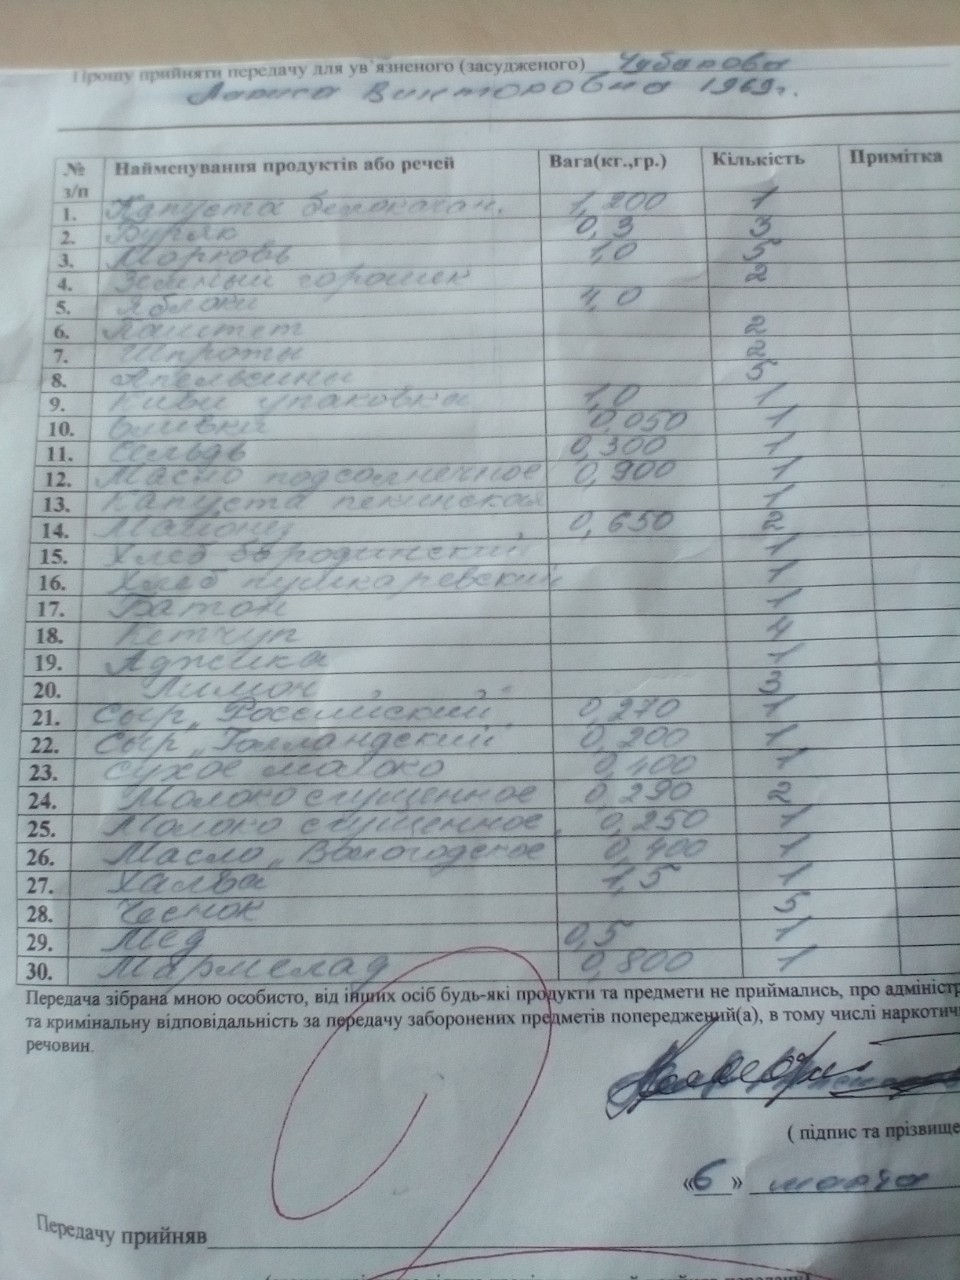 Прошу прийняти передачу для ув'язненого (засудженого) Чубарова
Лариса Викторовна 1969г.
№ з/п Найменування продуктів або речей Вага(кг.,гр.) Кількість Примітка
1. Капуста белокачан. 1,200 1
2. Буряк 0,3 3
3. Морковь 1,0 5
4. Зеленый горошек 2
5. Яблоки 4,0
6. Паштет 2
7. Шпроты 2
8. Апельсины 5
9. Киви упаковка 1,0 1
10. Оливки 0,050 1
11. Сельдь 0,300 1
12. Масло подсолнечное 0,900 1
13. Капуста пекинская 1
14. Майонез 0,650 2
15. Хлеб бородинский 1
16. Хлеб пушкаревский 1
17. Батон 1
18. Кетчуп 4
19. Аджика 1
20. Лимон 3
21. Сыр „Российский" 0,270 1
22. Сыр „Голландский" 0,200 1
23. Сухое молоко 0,400 1
24. Молоко сгущенное 0,290 2
25. Молоко сгущенное 0,250 1
26. Масло „Вологодское 0,400 1
27. Халва 1,5 1
28. Чеснок 5
29. Мед 0,5 1
30. Мармелад 0,800 1
Передача зібрана мною особисто, від інших осіб будь-які продукти та предмети не приймались, про адміністр
та кримінальну відповідальність за передачу заборонених предметів попереджений(а), в тому числі наркотичн
речовин.
( підпис та прізвище
«6» марта
Передачу прийняв